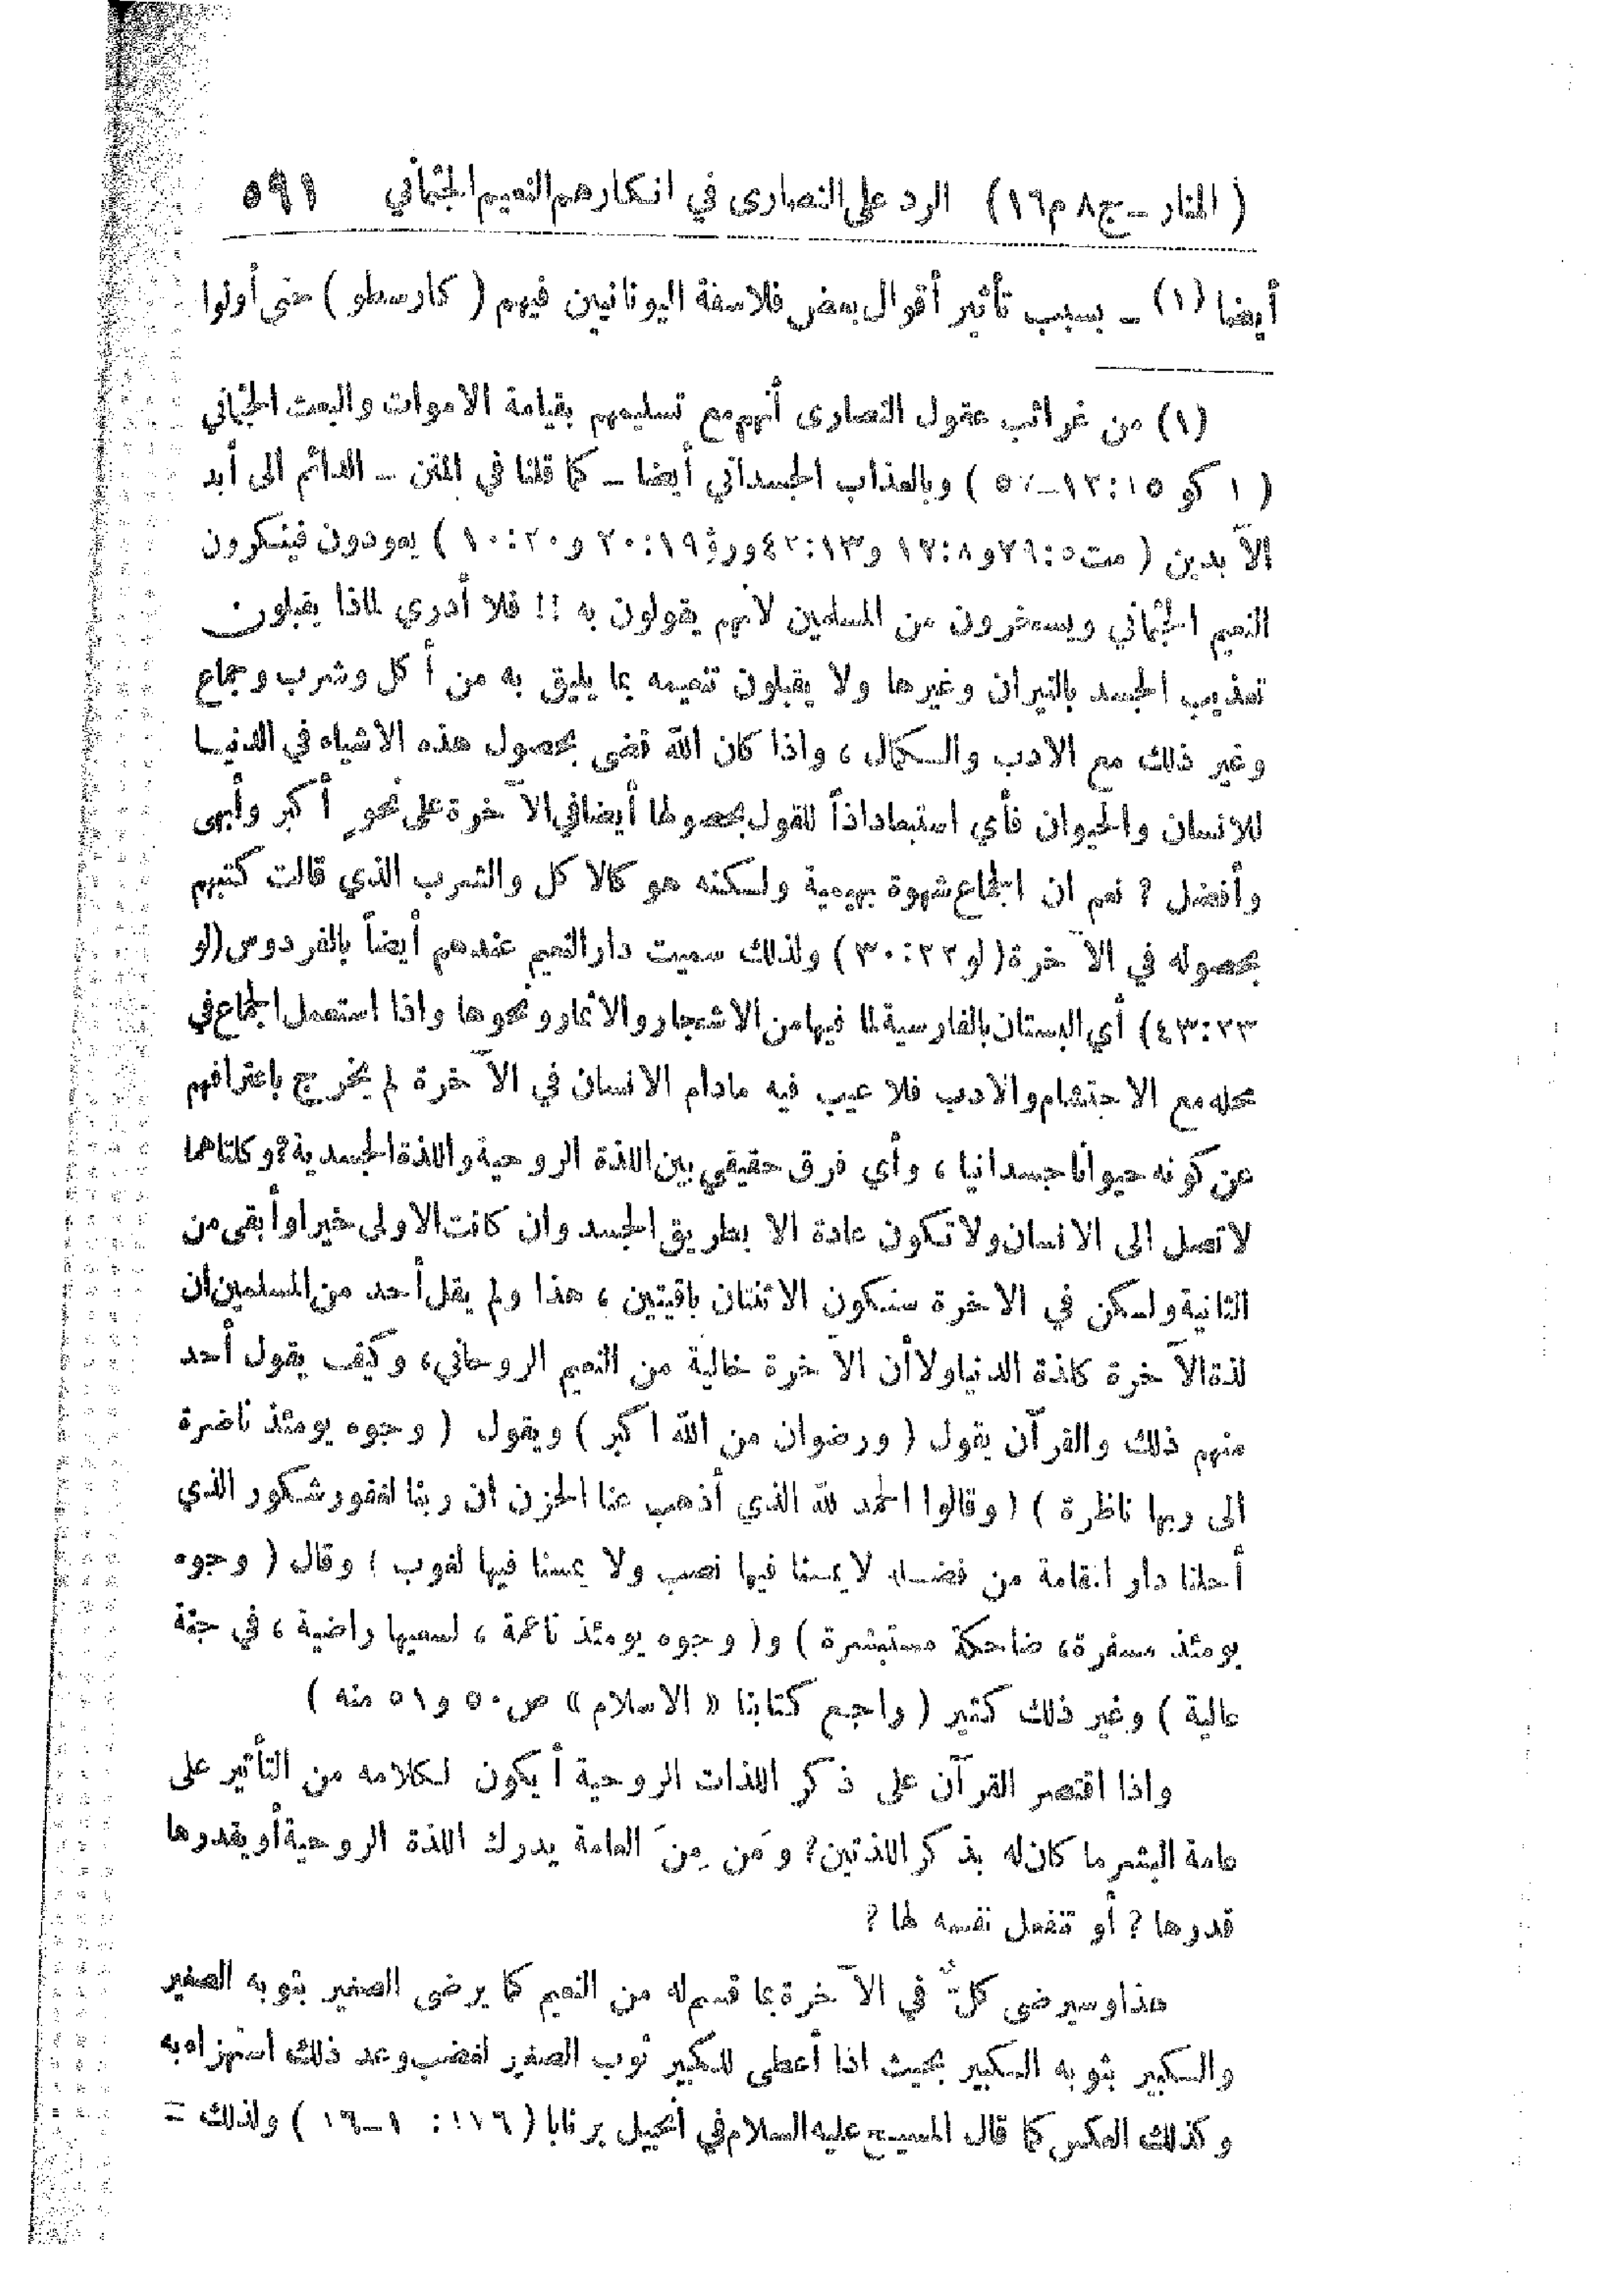 ( المنار ـ ج ٨ م ١٦ ) الرد على النصارى في انكارهم النعيم الجثماني ٥٩١
أيضا (١) ـ بسبب تأثير أقوال بعض فلاسفة اليونانيين فيهم ( كارسطو ) حتى أولوا
(١) من غرائب عقول النصارى أنهم مع تسليمهم بقيامة الاموات والبعث الجثماني
( ١ كو ١٥ : ١٢ـ٥٠ ) وبالعذاب الجسداني أيضا ـ كما قلنا في المتن ـ الدائم الى أبد
الآبدين ( مت ٥ : ٢٩ و ٨ : ١٢ و ١٣ : ٤٢ ورؤ ١٩ : ٢٠ و ٢٠ : ١٠ ) يعودون فينكرون
النعيم الجثماني ويسخرون من المسلمين لأنهم يقولون به !! فلا أدري لماذا يقبلون
تعذيب الجسد بالنيران وغيرها ولا يقبلون تنعيمه بما يليق به من أكل وشرب وجماع
وغير ذلك مع الادب والكمال ، واذا كان الله قضى بحصول هذه الاشياء في الدنيا
للانسان والحيوان فأي استبعاد اذاً للقول بحصولها أيضا في الآخرة على نحوٍ أكبر وأبهى
وأفضل ؟ نعم ان الجماع شهوة بهيمية ولكنه هو كالاكل والشرب الذي قالت كتبهم
بحصوله في الآخرة ( لو ٢٢ : ٣٠ ) ولذلك سميت دار النعيم عندهم أيضاً بالفردوس (لو
٢٣ : ٤٣) أي البستان بالفارسية لما فيها من الاشجار والاثمار ونحوها واذا استعمل الجماع في
محله مع الاحتشام والادب فلا عيب فيه مادام الانسان في الآخرة لم يخرج باعترافهم
عن كونه حيوانا جسدانيا ، وأي فرق حقيقي بين اللذة الروحية واللذة الجسدية ؟ وكلتاهما
لا تصل الى الانسان ولا تكون عادة الا بطريق الجسد وان كانت الاولى خيرا وأبقى من
الثانية ولكن في الاخرة ستكون الاثنتان باقيتين ، هذا ولم يقل أحد من المسلمين ان
لذة الآخرة كلذة الدنيا ولا أن الآخرة خالية من النعيم الروحاني ، وكيف يقول أحد
منهم ذلك والقرآن يقول ( ورضوان من الله اكبر ) ويقول ( وجوه يومئذ ناضرة
الى ربها ناظرة ) ( وقالوا الحمد لله الذي أذهب عنا الحزن ان ربنا لغفور شكور الذي
أحلنا دار المقامة من فضله لا يمسنا فيها نصب ولا يمسنا فيها لغوب ) وقال ( وجوه
يومئذ مسفرة ، ضاحكة مستبشرة ) و ( وجوه يومئذ ناعمة ، لسعيها راضية ، في جنة
عالية ) وغير ذلك كثير ( راجع كتابنا « الاسلام » ص ٥٠ و ٥١ منه )
واذا اقتصر القرآن على ذكر اللذات الروحية أيكون لكلامه من التأثير على
عامة البشر ما كان له بذكر اللذتين ؟ ومَن مِنَ العامة يدرك اللذة الروحية أو يقدرها
قدرها ؟ أو تنفعل نفسه لها ؟
هذا وسيرضى كلٌّ في الآخرة بما قسم له من النعيم كما يرضى الصغير بثوبه الصغير
والكبير بثوبه الكبير بحيث اذا أعطى للكبير ثوب الصغير لغضب وعد ذلك استهزاء به
وكذلك العكس كما قال المسيح عليه السلام في أنجيل برنابا ( ١٧٦ : ١ـ١٦ ) ولذلك =